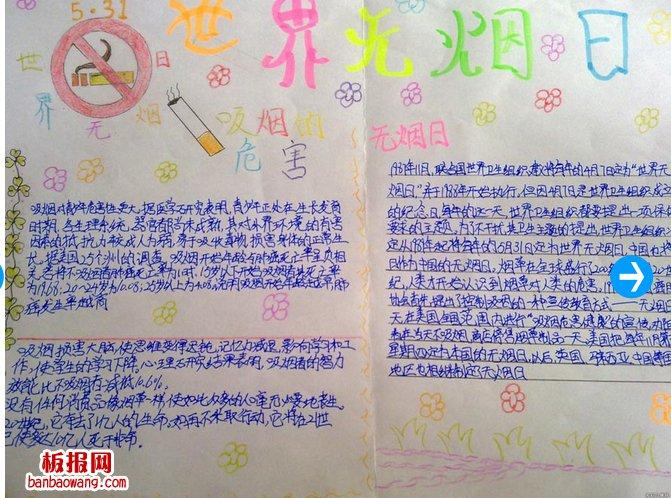 5·31
世界无烟日
世界无烟日
吸烟的
危害
吸烟对青少年危害性更大,据医学研究表明,青少年正处在生长发育
时期,各生理系统、器官都尚未成熟,其对外界环境的有害
因素的抵抗力较成人为弱,易于吸收毒物,损害身体的正常生
长。据美国25个州的调查,吸烟开始年龄与肺癌死亡率呈负相
吸烟损害大脑,使思维变得迟钝,记忆力减退,影响学习和工
作,使学生的学习下降,心理研究结果表明,吸烟者的智力
效能比不吸烟者减低10.6%。
没有任何消费品像烟草一样,使如此众多的人口毫无必要地丧生。
20世纪,它夺去了1亿人的生命,如再不采取行动,它将在21世
无烟日
1987年11月,联合国世界卫生组织建议将每年的4月7日定为"世界无
烟日",并于1988年开始执行,但因4月7日是世界卫生组织成立
的纪念日,每年的这一天,世界卫生组织都要提出一项保健
要求的主题,为了不干扰其卫生主题的提出,世界卫生组织
定从1989年起将每年的5月31日定为世界无烟日,中国也将
日作为中国的无烟日,烟草在全球盛行了200
纪,人类才开始认识到烟草对人类的危害,
协会首先提出了控制吸烟的一种宣传教育方式——无烟日
天在美国全国范围内进行"吸烟危害健康"的宣传
星期四定为本国的无烟日,以后英国、马来西亚、中国
地区也相继制定了无烟日
板报网
banbaowang.com